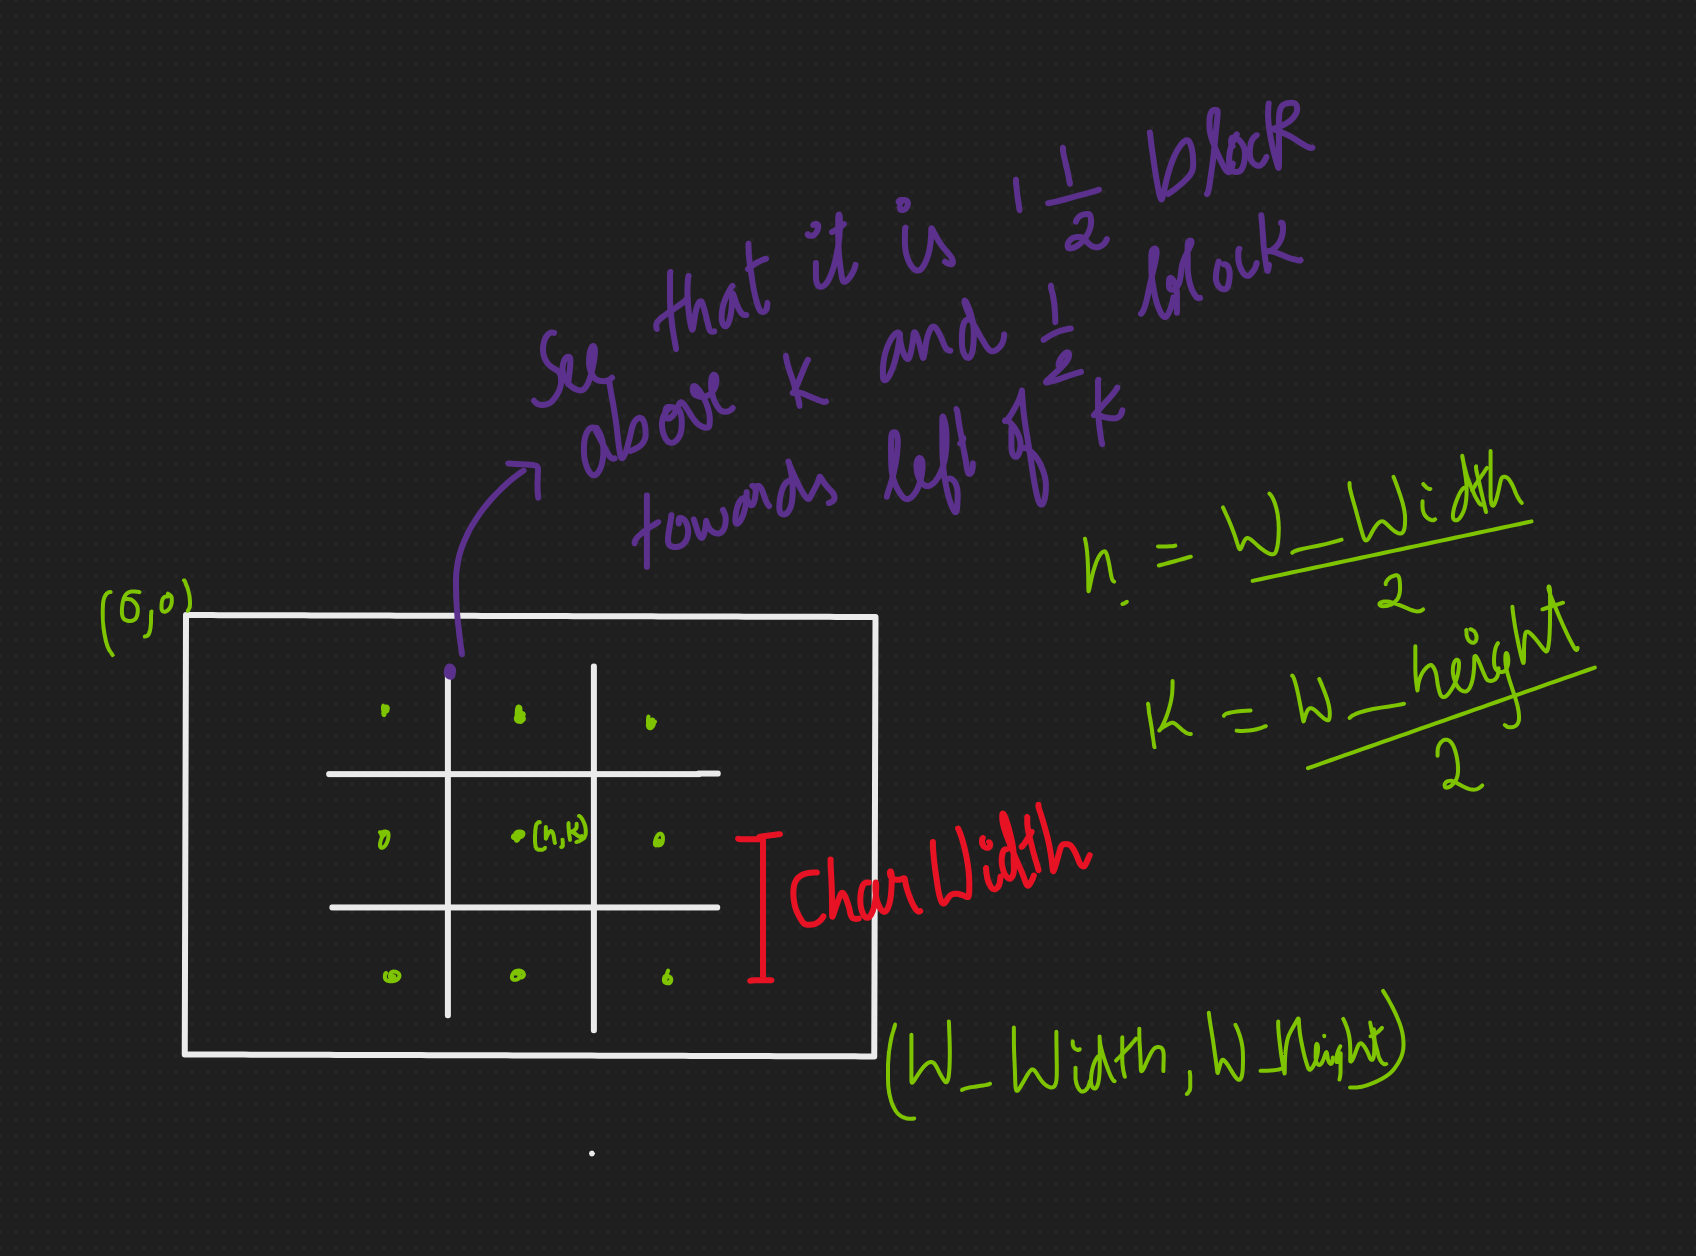 See that it is 1 1/2 block
above K and 1/2 block
towards left of K
h = W_Width/2
K = W_height/2
(0,0)
(h,k)
CharWidth
(W_Width, W_Height)